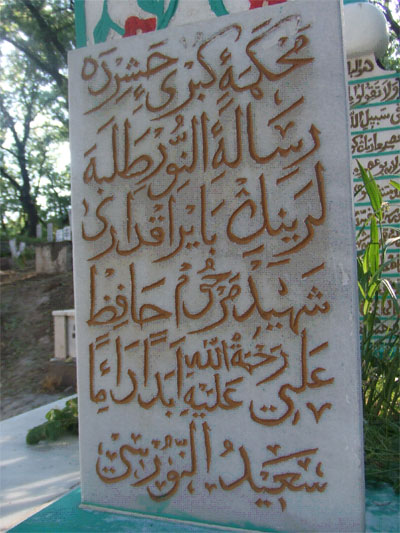 محكمۀ كبرى حشرده
رسالۀ النور طلبه
لرينڭ بايراقدارى
شهيد مرحوم حافظ
على رحمة الله عليه ابدا دائما
سعيد النورسى
ولا تقولوا
سبيل الله